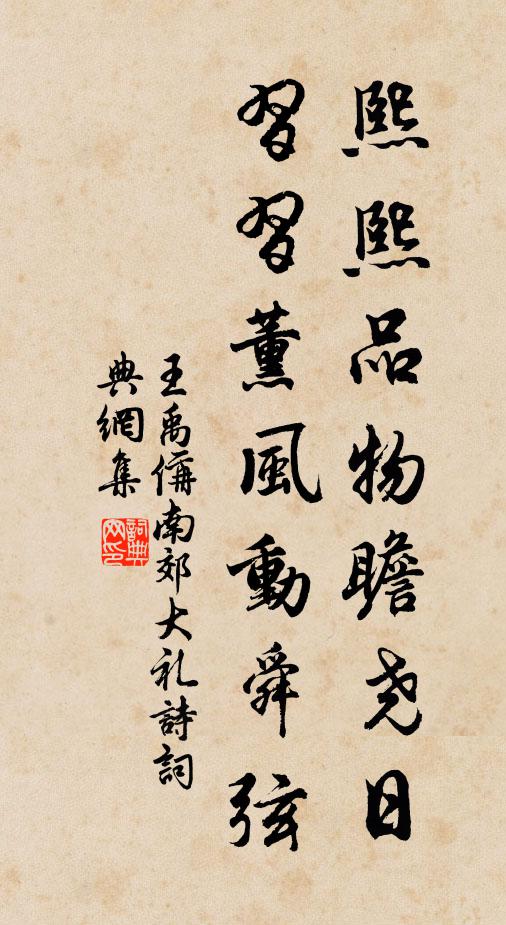 熙熙品物瞻尧日
習習薰風動舜弦
王禹偁南郊大礼詩詞
典網集
詞典网印